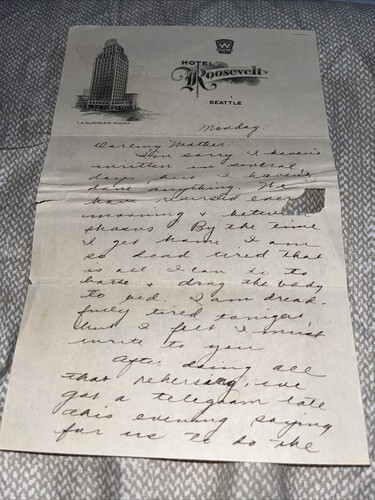 W
HOTEL
Roosevelt
SEATTLE
Monday
Darling Mother
I'm sorry I haven't
written in several
days, but I haven't
done anything. We
have rehearsed every
morning & between
shows By the time
I get home I am
so dead tired that
is all I can do to
bathe & drag the body
to bed. I am dread-
fully tired tonight
but I felt I must
write to you
After doing all
that rehersing, we
got a telegram late
this evening saying
for us to do the